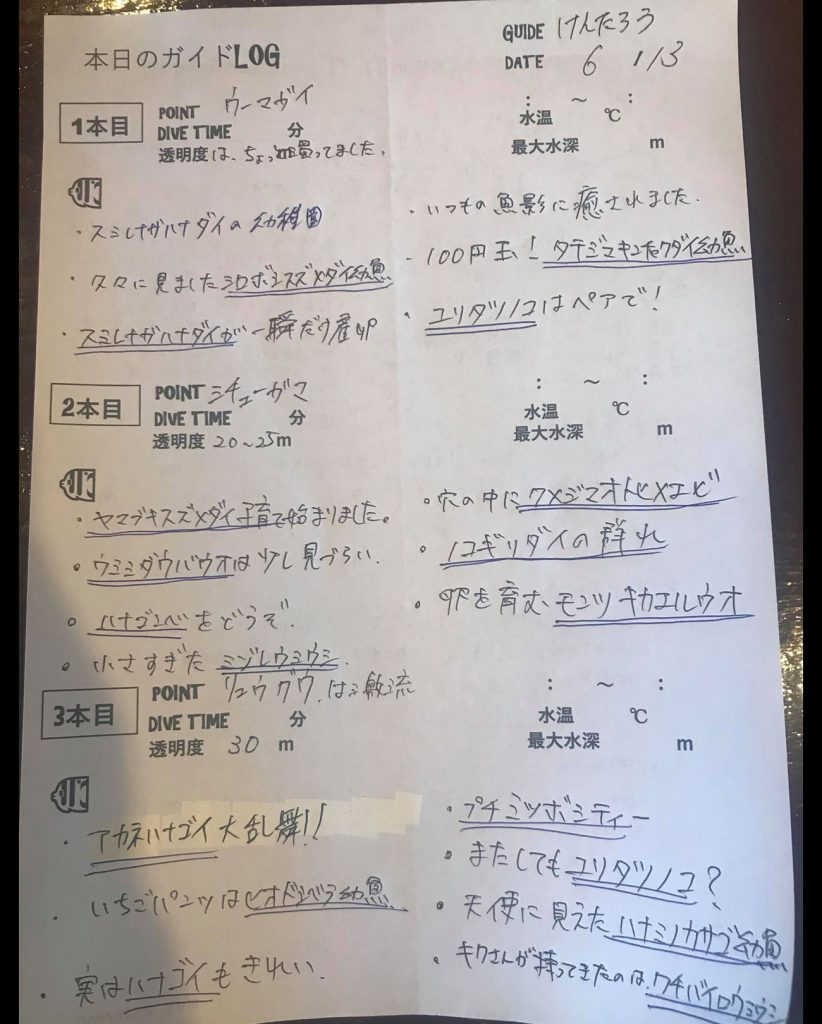 本日のガイドLOG
GUIDE けんたろう
DATE 6 1/3
1本目
POINT ウーマガイ
DIVE TIME 分
透明度は、ちょっと濁ってました。
: ~ :
水温 ℃
最大水深 m
・スミレナガハナダイの幼稚園
・久々に見ましたシロボシスズメダイ幼魚
・スミレナガハナダイが一瞬だけ産卵
・いつもの魚影に癒されました.
・100円玉！タテジマキンチャクダイ幼魚
・ユリタツノコはペアで！
2本目
POINT ミチューガマ
DIVE TIME 分
透明度 20~25m
: ~ :
水温 ℃
最大水深 m
・ヤマブキスズメダイ子育て始まりました。
・ウミショウバウオは少し見づらい.
・ハナゴンベをどうぞ.
・小さすぎたミゾレウミウシ.
・穴の中にクメジマオトヒメエビ
・ノコギリダイの群れ
・卵を育む、モンツキカエルウオ
3本目
POINT リュウグウ.は激流
DIVE TIME 分
透明度 30 m
: ~ :
水温 ℃
最大水深 m
・アカネハナゴイ大乱舞!!
・いちごパンツはヒオドシベラ幼魚.
・実はハナゴイもきれい.
・プチミツボシティー
・またしてもユリタツノコ？
・天使に見えたハナミノカサゴ幼魚
・キクさんが持ってきたのは、クチバイロウミウシ